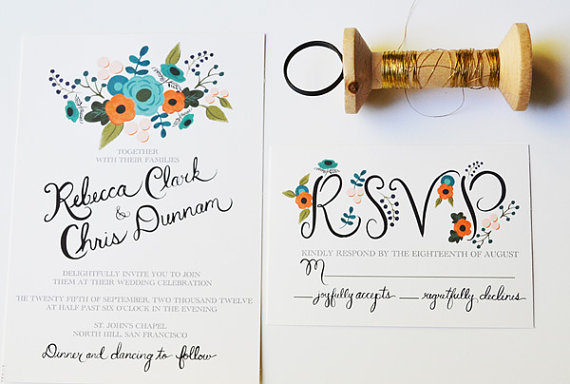 TOGETHER
WITH THEIR FAMILIES
Rebecca Clark
&
Chris Dunnam
DELIGHTFULLY INVITE YOU TO JOIN
THEM AT THEIR WEDDING CELEBRATION
THE TWENTY FIFTH OF SEPTEMBER, TWO THOUSAND TWELVE
AT HALF PAST SIX O'CLOCK IN THE EVENING
ST. JOHN'S CHAPEL
NORTH HILL, SAN FRANCISCO
Dinner and dancing to follow
RSVP
KINDLY RESPOND BY THE EIGHTEENTH OF AUGUST
M
joyfully accepts regretfully declines